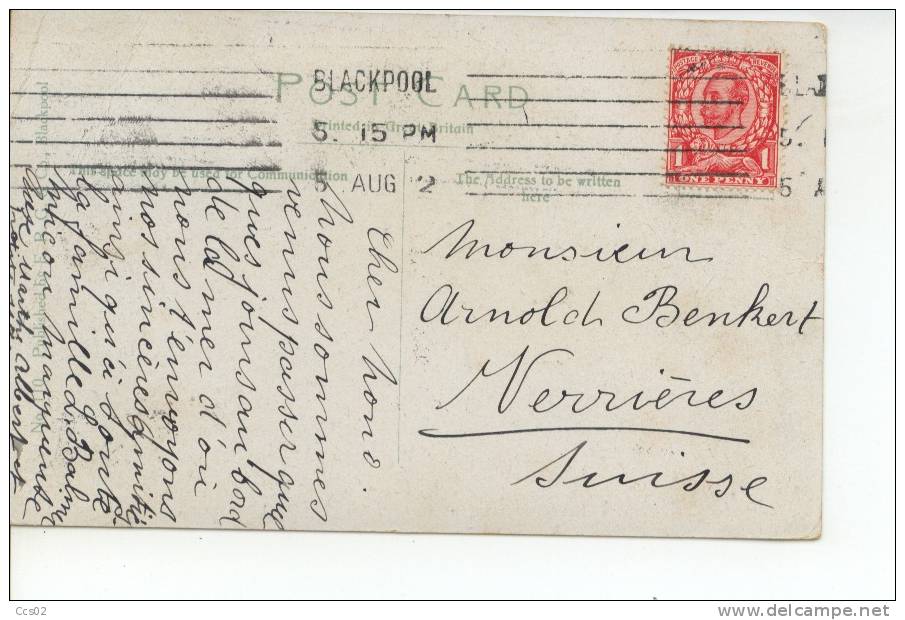 POST CARD
Printed in Great Britain
BLACKPOOL
5. 15 PM
5 AUG 2
This space may be used for Communication
The Address to be written
here
POSTAGE REVENUE
1 1
ONE PENNY
Monsieur
Arnold Benkert
Verrières
Suisse
Cher nono.
Nous sommes
venus passer quel
ques jours au bord
de la mer d'où
nous t'envoyons
nos sincères amitiés
ainsi qu'à toute
la famille
marguerite
Albert
Published by
Blackpool
Ccs02
delcampe.net